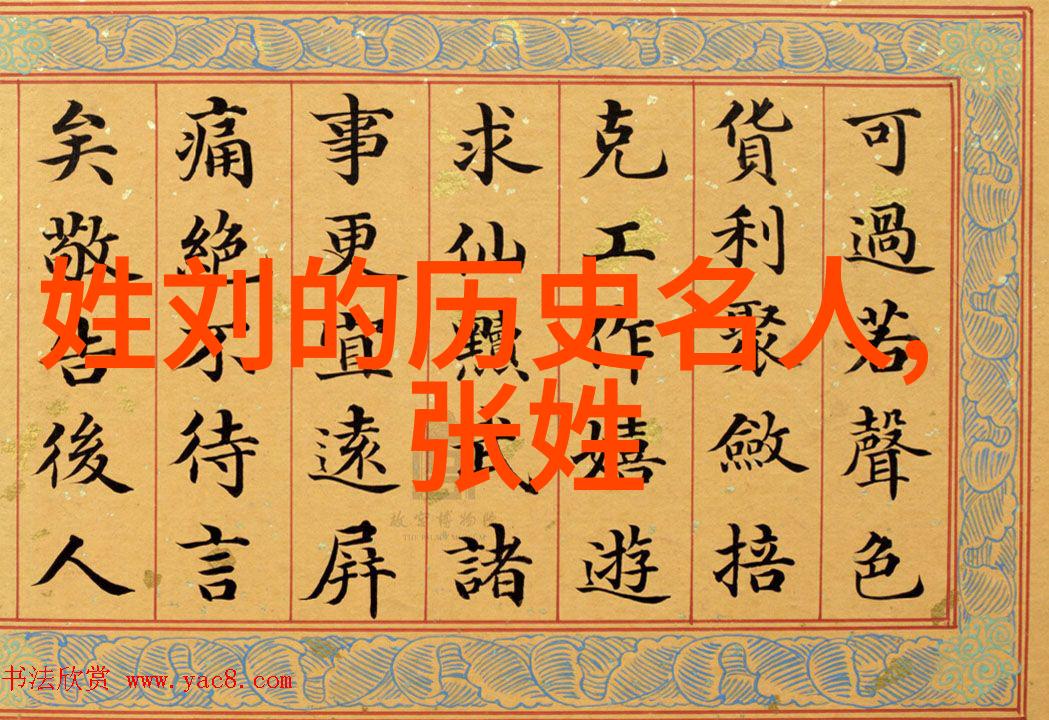 可過若聲色
貨利聚斂掊
克工作嬉遊
求仙黷武諸
事更宜遠屏
痛絕不待言
矣敬告後人
姓刘的历史名人,
张姓
故宫博物院
书法欣赏 www.yac8.com